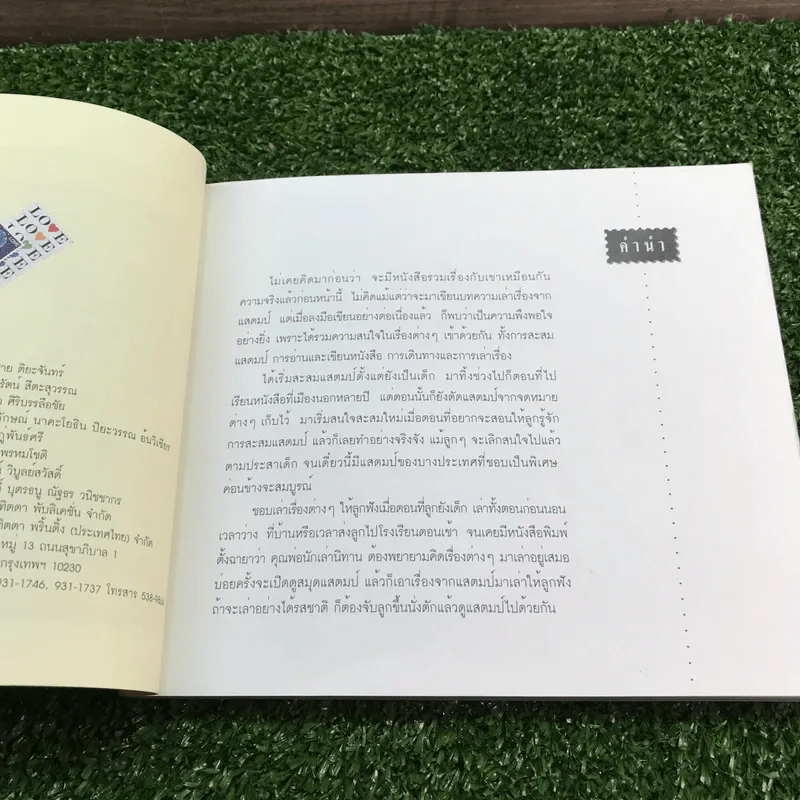 LOVE
LOVE
คำนำ
ไม่เคยคิดมาก่อนว่า จะมีหนังสือรวมเรื่องกับเขาเหมือนกัน
ความจริงแล้วก่อนหน้านี้ ไม่คิดแม้แต่ว่าจะมาเขียนบทความเล่าเรื่องจาก
แสตมป์ แต่เมื่อลงมือเขียนอย่างต่อเนื่องแล้ว ก็พบว่าเป็นความพึงพอใจ
อย่างยิ่ง เพราะได้รวมความสนใจในเรื่องต่างๆ เข้าด้วยกัน ทั้งการสะสม
แสตมป์ การอ่านและเขียนหนังสือ การเดินทางและการเล่าเรื่อง
ได้เริ่มสะสมแสตมป์ตั้งแต่ยังเป็นเด็ก มาทิ้งช่วงไปก็ตอนที่ไป
เรียนหนังสือที่เมืองนอกหลายปี แต่ตอนนั้นก็ยังตัดแสตมป์จากจดหมาย
ต่างๆ เก็บไว้ มาเริ่มสนใจสะสมใหม่เมื่อตอนที่อยากจะสอนให้ลูกรู้จัก
การสะสมแสตมป์ แล้วก็เลยทำอย่างจริงจัง แม้ลูกๆ จะเลิกสนใจไปแล้ว
ตามประสาเด็ก จนเดี๋ยวนี้มีแสตมป์ของบางประเทศที่ชอบเป็นพิเศษ
ค่อนข้างจะสมบูรณ์
ชอบเล่าเรื่องต่างๆ ให้ลูกฟังเมื่อตอนที่ลูกยังเด็ก เล่าทั้งตอนก่อนนอน
เวลาว่าง ที่บ้านหรือเวลาส่งลูกไปโรงเรียนตอนเช้า จนเคยมีหนังสือพิมพ์
ตั้งฉายาว่า คุณพ่อนักเล่านิทาน ต้องพยายามคิดเรื่องต่างๆ มาเล่าอยู่เสมอ
บ่อยครั้งจะเปิดดูสมุดแสตมป์ แล้วก็เอาเรื่องจากแสตมป์มาเล่าให้ลูกฟัง
ถ้าจะเล่าอย่างได้รสชาติ ก็ต้องจับลูกขึ้นนั่งตักแล้วดูแสตมป์ไปด้วยกัน
ติยะจันทร์
รัตน์ สีตะสุวรรณ
ศิริบรรลือชัย
ลักษณ์ นาคะโยธิน ปิยะวรรณ อ้นวิเชียร
ภู่พันธศรี
พรหมโชติ
วิบูลย์สวัสดิ์
บุตรธนู ณัฐธร วนิชชากร
ทิตตา พับลิเคชั่น จำกัด
ทิตตา พริ้นติ้ง (ประเทศไทย) จำกัด
หมู่ 13 ถนนสุขาภิบาล 1
กรุงเทพฯ 10230
931-1746, 931-1737 โทรสาร